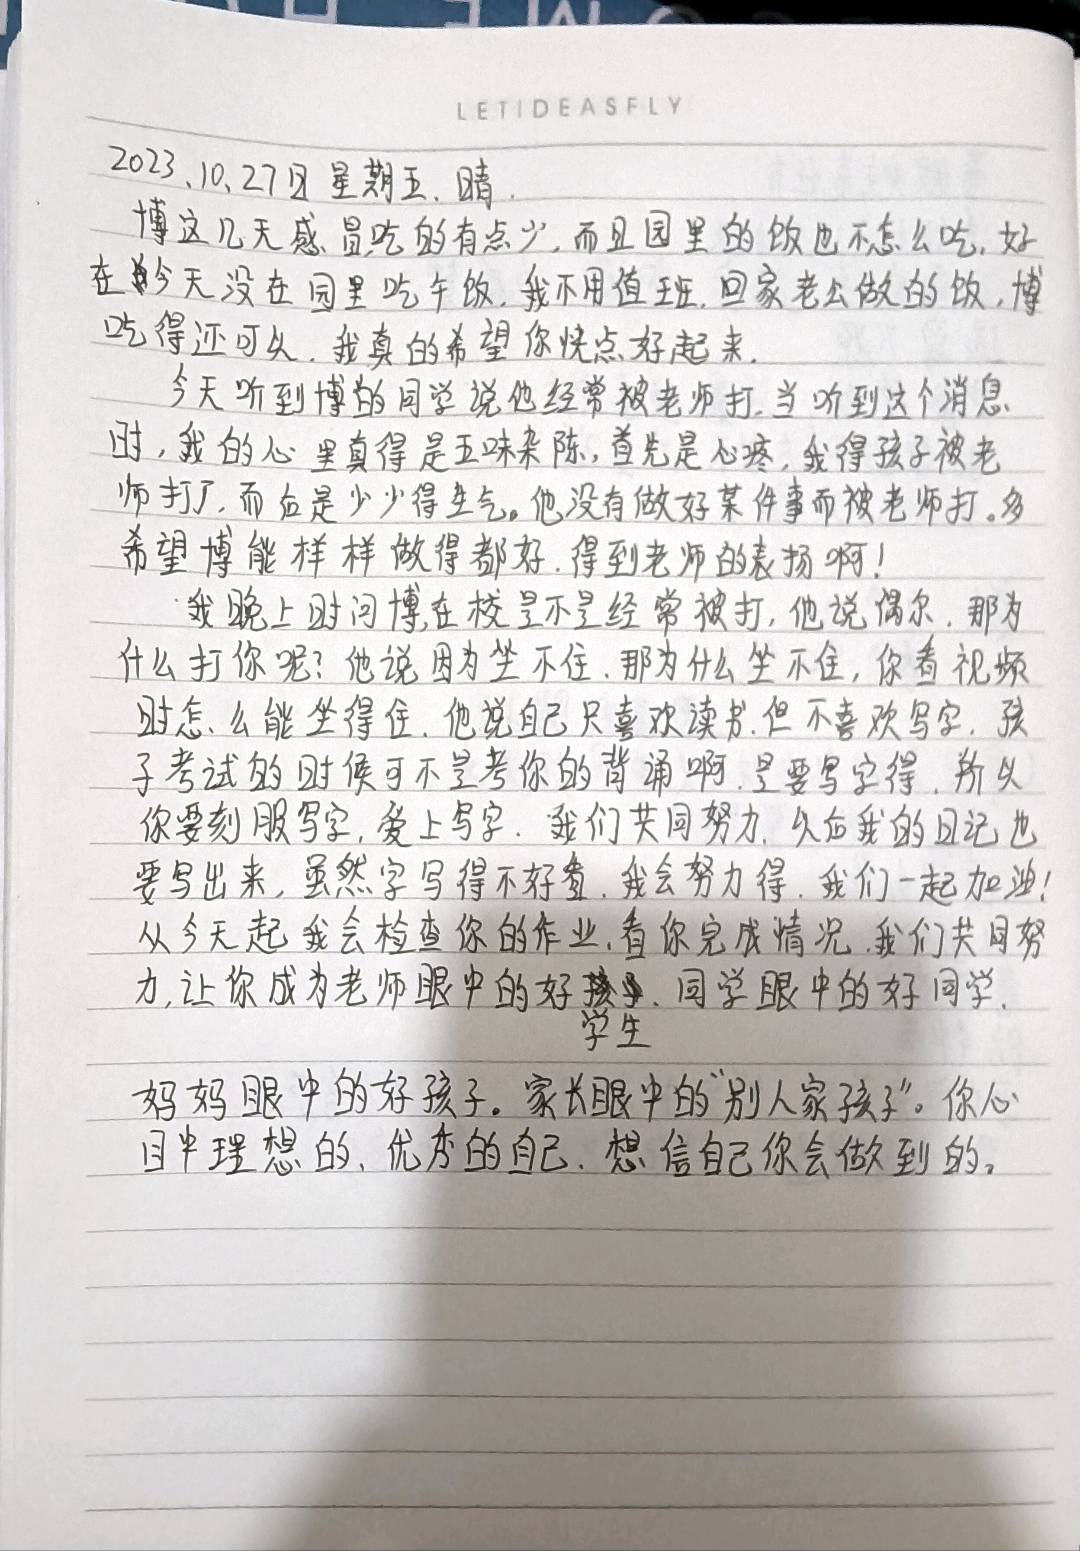 LETIDEASFLY
2023、10、27日 星期五、晴.
博这几天感冒吃的有点少,而且园里的饭也不怎么吃,好
在今天没在园里吃午饭,我不用值班,回家老公做的饭,博
吃得还可以,我真的希望你快点好起来.
今天听到博的同学说他经常被老师打,当听到这个消息
时,我的心里真得是五味杂陈,首先是心疼,我得孩子被老
师打了,而后是少少得生气。他没有做好某件事而被老师打。多
希望博能样样做得都好,得到老师的表扬啊!
我晚上时问博,在校是不是经常被打,他说偶尔,那为
什么打你呢?他说因为坐不住,那为什么坐不住,你看视频
时怎么能坐得住,他说自己只喜欢读书,但不喜欢写字,孩
子考试的时候可不是考你的背诵啊,是要写字得,所以
你要刻服写字,爱上写字.我们共同努力,以后我的日记也
要写出来,虽然字写得不好看,我会努力得,我们一起加油!
从今天起我会检查你的作业,看你完成情况,我们共同努
力,让你成为老师眼中的好学生、同学眼中的好同学、
妈妈眼中的好孩子。家长眼中的"别人家孩子"。你心
目中理想的、优秀的自己.想信自己你会做到的。